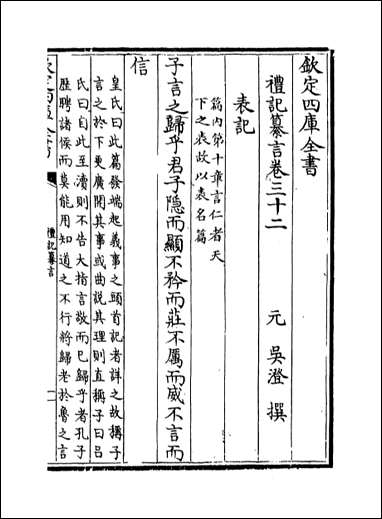 欽定四庫全書
禮記纂言卷三十二
元 吳澄 撰
表記
篇內第十章言仁者天
下之表故以表名篇
子言之歸乎君子隱而顯不矜而莊不厲而威不言而
信
皇氏曰此篇發端起義事之頭首記者詳之故稱子
言之於下更廣開其事或曲說其理則直稱子曰呂
氏曰自此至瀆則不告大指言敬而已歸乎者孔子
歴聘諸侯而莫能用知道之不行將歸老於魯之言
禮記纂言